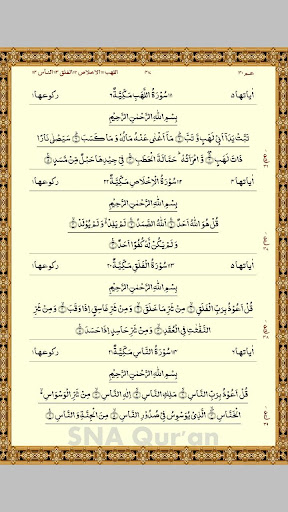 اللهب ١١١ الاخلاص ١١٢ الفلق ١١٣ الناس ١١٤
عم ٣٠
اٰياتها ٥ سُوْرَةُ اللَّهَبِ مَكِّيَّةٌ ٦ ركوعها ١
بِسْمِ اللّٰهِ الرَّحْمٰنِ الرَّحِيْمِ
تَبَّتْ يَدَآ اَبِيْ لَهَبٍ وَّتَبَّ ۝ مَآ اَغْنٰى عَنْهُ مَالُهٗ وَمَا كَسَبَ ۝ سَيَصْلٰى نَارًا
ذَاتَ لَهَبٍ ۝ وَّامْرَاَتُهٗ ؕ حَمَّالَةَ الْحَطَبِ ۝ فِيْ جِيْدِهَا حَبْلٌ مِّنْ مَّسَدٍ ۝
سُوْرَةُ الْاِخْلَاصِ مَكِّيَّةٌ ٢٢ ركوعها ١
بِسْمِ اللّٰهِ الرَّحْمٰنِ الرَّحِيْمِ
قُلْ هُوَ اللّٰهُ اَحَدٌ ۝ اَللّٰهُ الصَّمَدُ ۝ لَمْ يَلِدْ ۙ وَلَمْ يُوْلَدْ ۝
وَلَمْ يَكُنْ لَّهٗ كُفُوًا اَحَدٌ ۝
اٰياتها ٥ سُوْرَةُ الْفَلَقِ مَكِّيَّةٌ ٢٠ ركوعها ١
بِسْمِ اللّٰهِ الرَّحْمٰنِ الرَّحِيْمِ
قُلْ اَعُوْذُ بِرَبِّ الْفَلَقِ ۝ مِنْ شَرِّ مَا خَلَقَ ۝ وَمِنْ شَرِّ غَاسِقٍ اِذَا وَقَبَ ۝ وَمِنْ شَرِّ
النَّفّٰثٰتِ فِي الْعُقَدِ ۝ وَمِنْ شَرِّ حَاسِدٍ اِذَا حَسَدَ ۝
سُوْرَةُ النَّاسِ مَكِّيَّةٌ ٢١ ركوعها ١
بِسْمِ اللّٰهِ الرَّحْمٰنِ الرَّحِيْمِ
قُلْ اَعُوْذُ بِرَبِّ النَّاسِ ۝ مَلِكِ النَّاسِ ۝ اِلٰهِ النَّاسِ ۝ مِنْ شَرِّ الْوَسْوَاسِ ۙ
الْخَنَّاسِ ۝ الَّذِيْ يُوَسْوِسُ فِيْ صُدُوْرِ النَّاسِ ۝ مِنَ الْجِنَّةِ وَالنَّاسِ ۝
SNA Qur'an